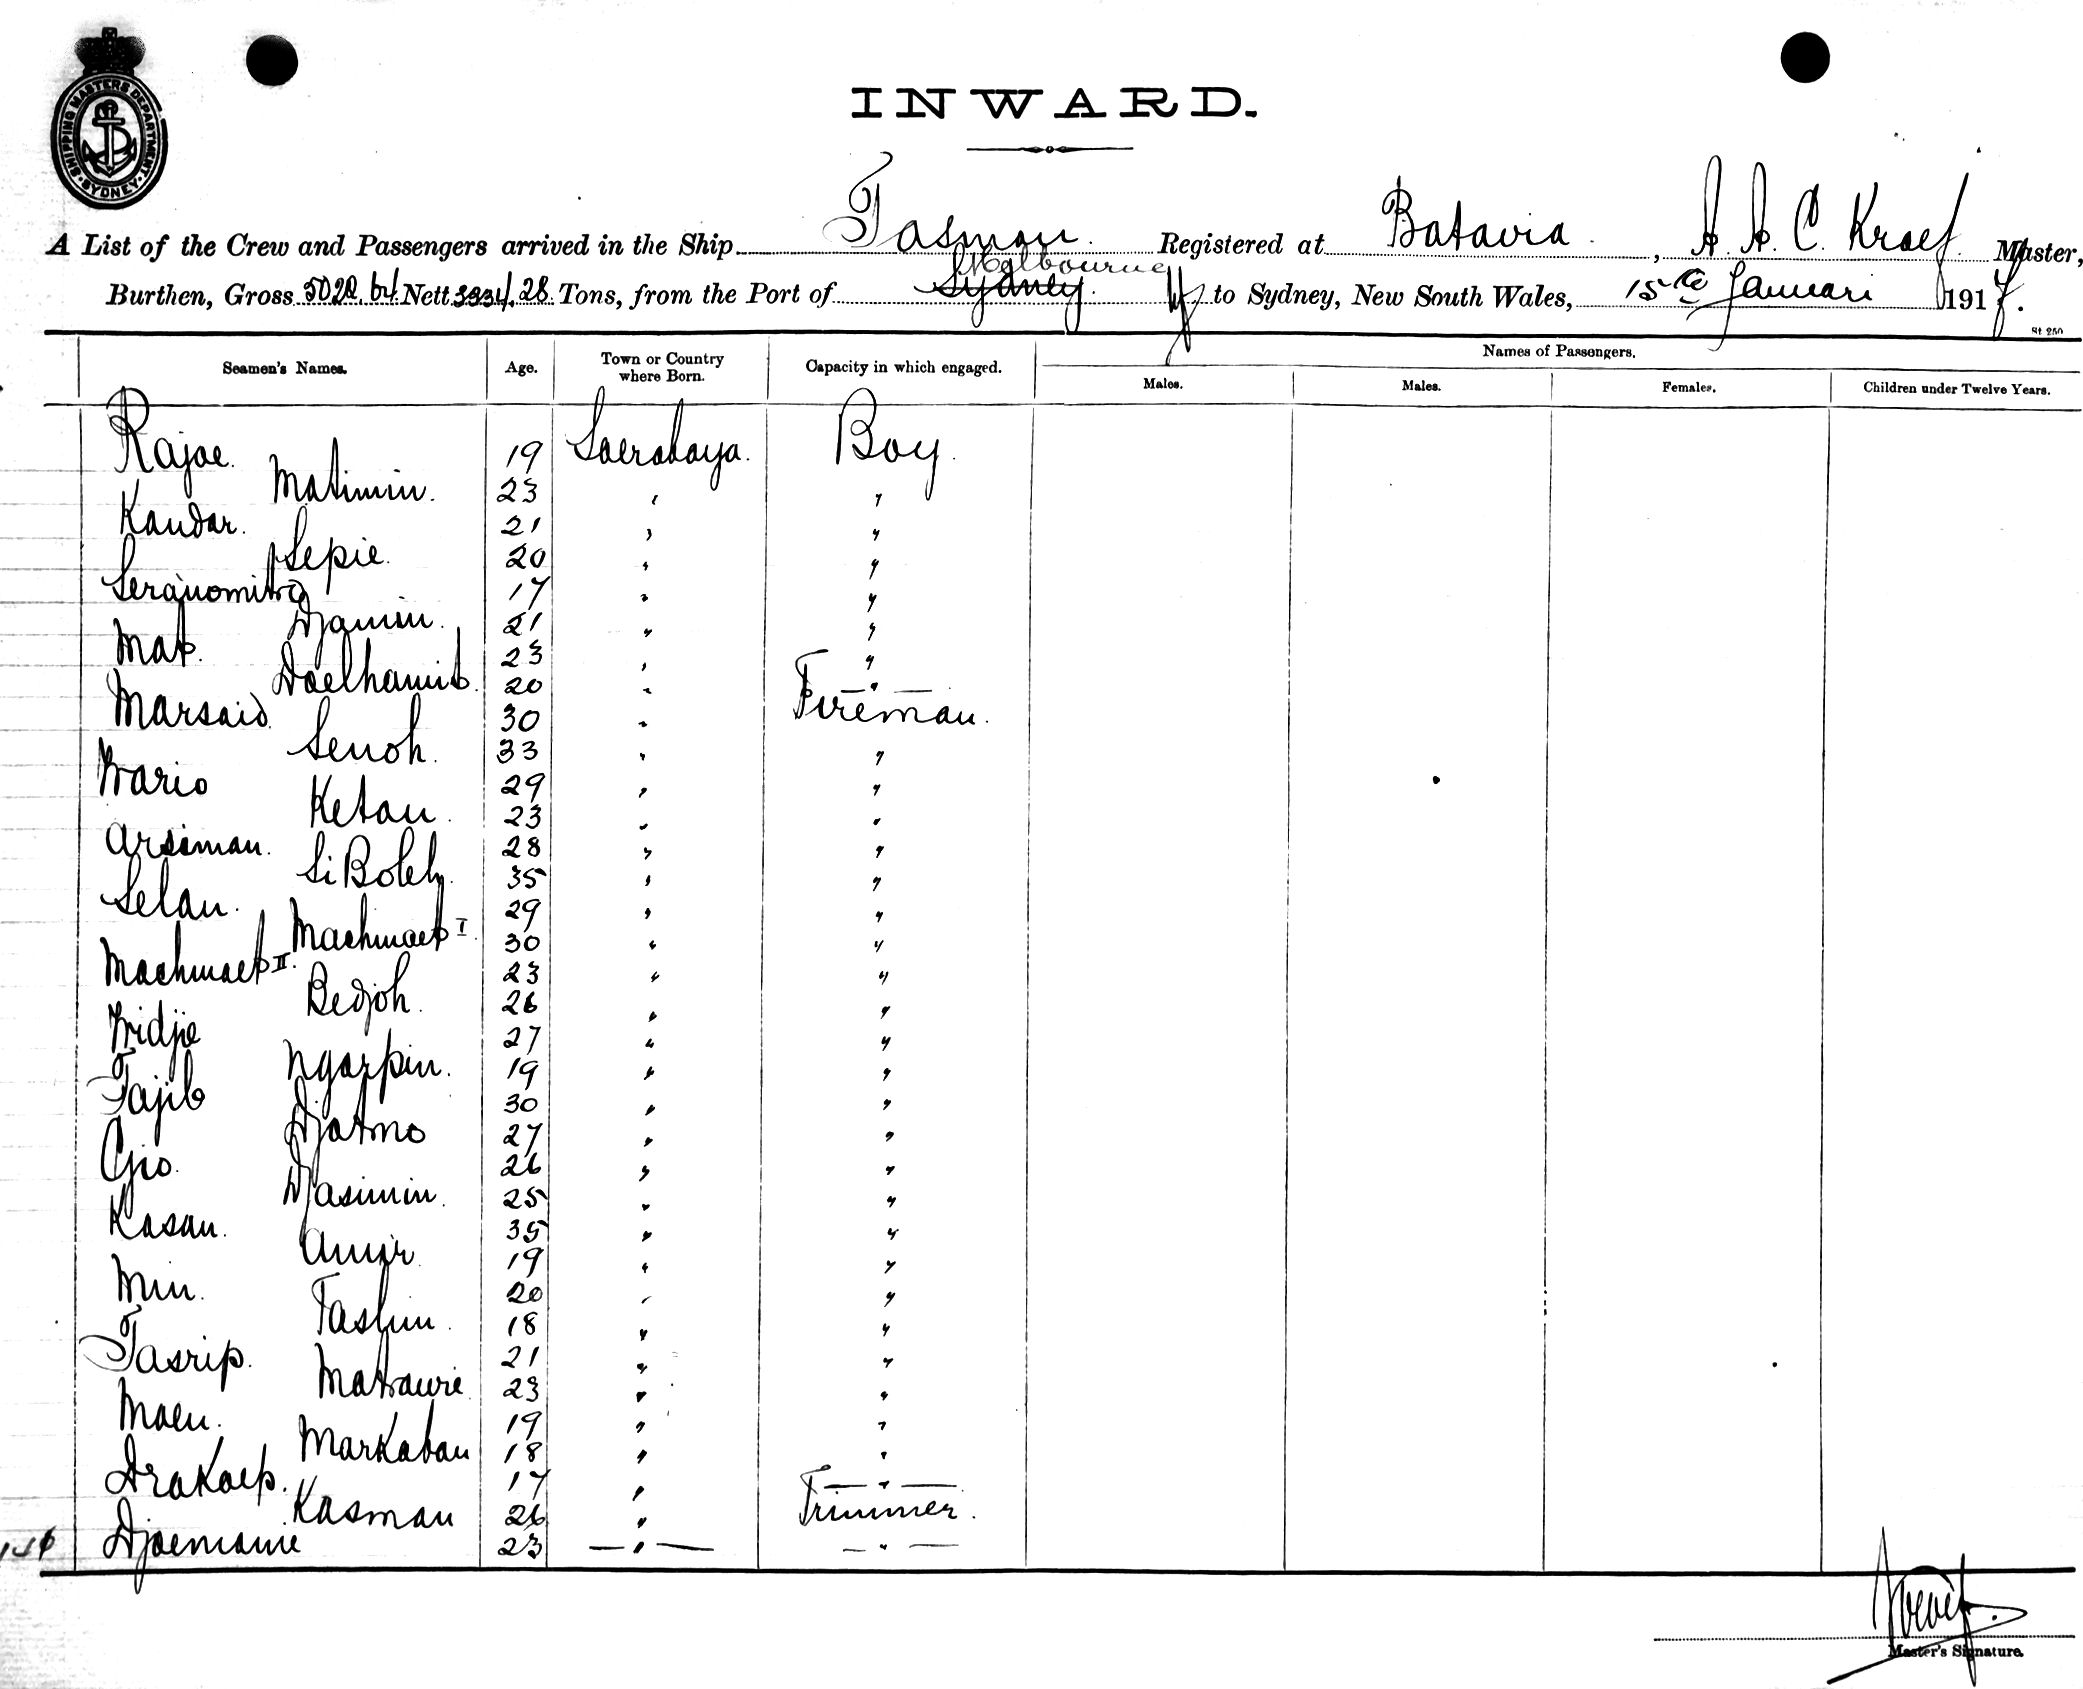 SHIPPING MASTERS DEPARTMENT · SYDNEY ·
INWARD.
A List of the Crew and Passengers arrived in the Ship Tasman. Registered at Batavia, A. A. C. Kraef Master,
Melbourne
Burthen, Gross Nett 3334.28 Tons, from the Port of Sydney to Sydney, New South Wales, 15de Januari 1917.
St. 250
Seamen's Names. Age. Town or Country where Born. Capacity in which engaged. Names of Passengers.
Males. Males. Females. Children under Twelve Years.
Rajoe. 19 Soerabaya. Boy.
Matimin. 23 " "
Kandar. 21 " "
Sepie. 20 " "
17 " "
Djamin. 21 " "
Mat. 23 " "
Doelhamit. 20 " "
Marsaid. 30 " Fireman.
Senoh. 33 " "
Wario 29 " "
Ketan. 23 " "
Arsiman. 28 " "
Si Boleh. 35 " "
Selan. 29 " "
Machmaet I. 30 " "
Machmaet II. 23 " "
Bedjoh. 26 " "
Wridjie 27 " "
Ngarpin. 19 " "
Tajib 30 " "
Djatmo 27 " "
26 " "
Djasimin. 25 " "
Kasan. 35 " "
Amir. 19 " "
Min. 20 " "
Taslim. 18 " "
Tasrip. 21 " "
Matrawie 23 " "
Maen. 19 " "
Markaban 18 " "
Drakaep. 17 " "
Kasman 26 " Trimmer.
Djoemanie 23 " "
Master's Signature.